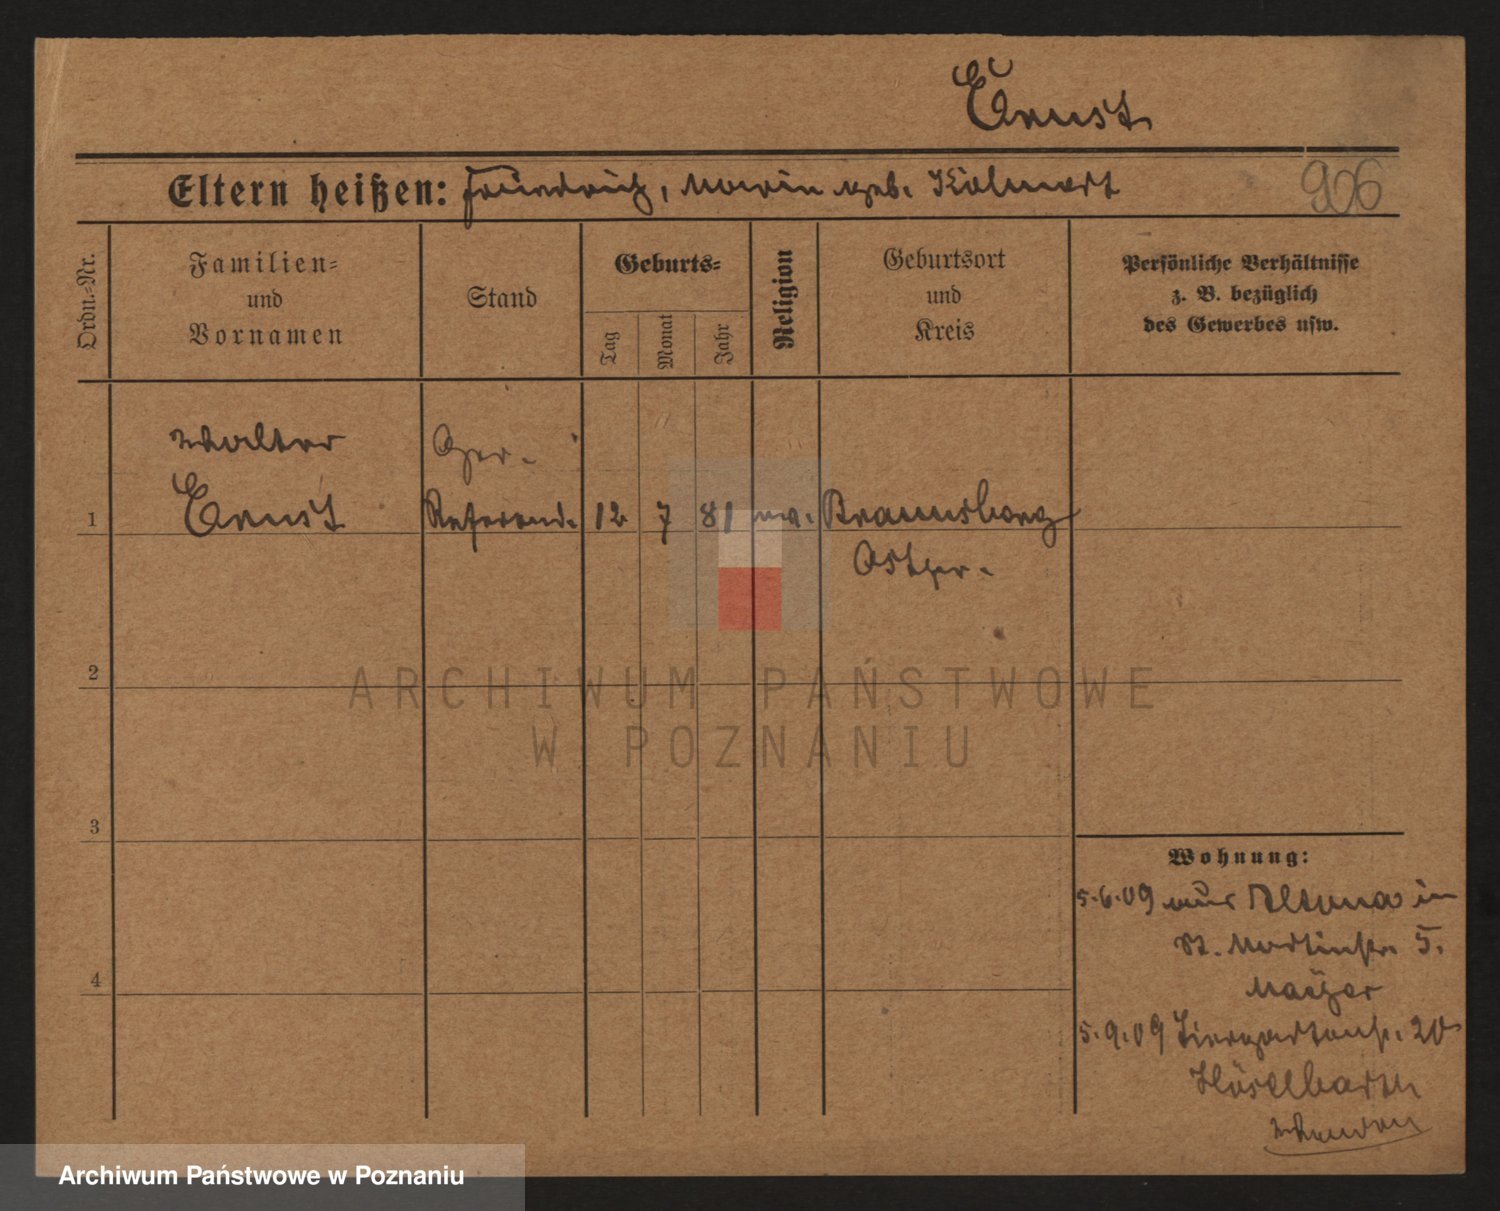 Ernst
Eltern heißen: Friedrich, Marie geb. Kolmart
906
Ordn.-Nr.
Familien-
und
Vornamen
Stand
Geburts-
Tag
Monat
Jahr
Religion
Geburtsort
und
Kreis
Persönliche Verhältnisse
z. B. bezüglich
des Gewerbes usw.
Walter
Ernst
Ger.-
Referend.
1
12
7
81
Braunsberg
Ostpr.
2
3
4
Wohnung:
5.6.09 aus Altona in
St. Martinstr. 5.
Mayer
5.9.09 Tiergartenstr. 20
Höselbarth
ARCHIWUM PAŃSTWOWE
W POZNANIU
Archiwum Państwowe w Poznaniu